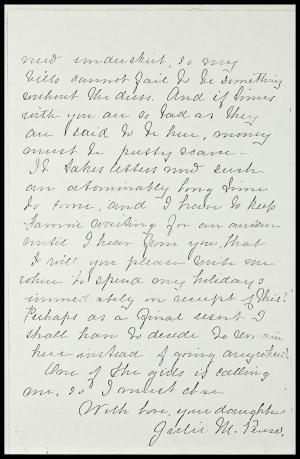 new underskirt, so my
bills cannot fail to be something
without the dress. And if times
with you are so bad as they
are said to be here, money
must be pretty scarce –
It takes letters now such
an abominably long time
to come, and I have to keep
Fannie waiting for an answer
until I hear from you, that
I will you please write me
where to spend my holidays
immediately on receipt of this?
Perhaps as a final resort I
shall have to decide to remain
here instead of going anywhere.
One of the girls is calling
me, so I must close.
With love, your daughter
M.